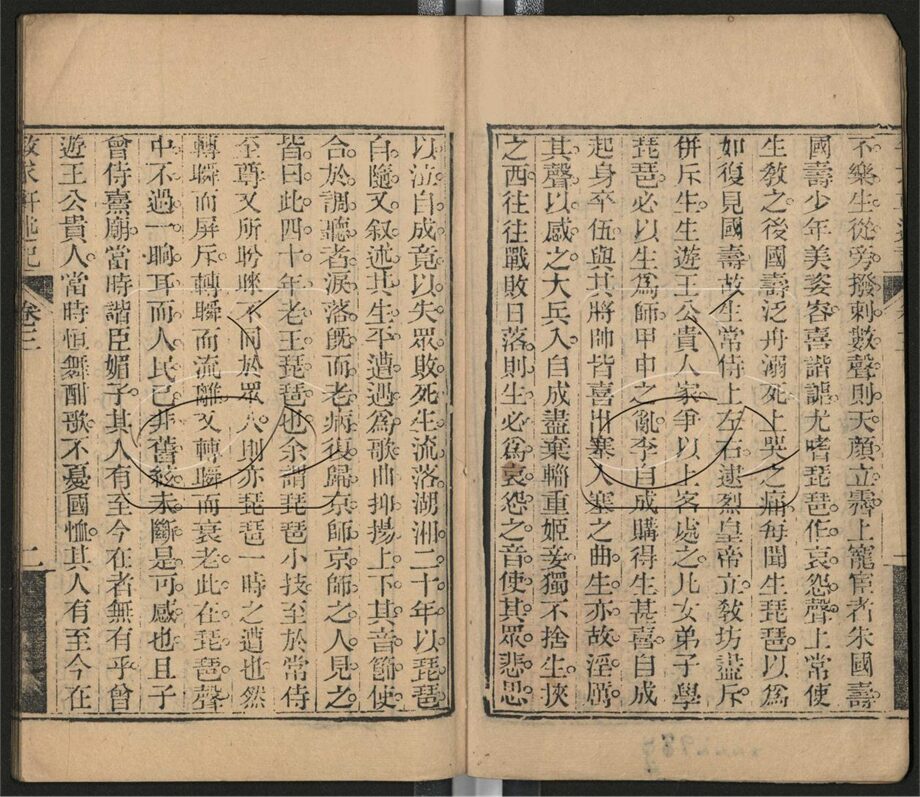 不樂生從旁撥剌數聲則天顏立霽上寵宦者朱國壽
國壽少年美姿容喜諧謔尤嗜琵琶但哀怨聲上常使
生敎之後國壽泛舟溺死上哭之痛每聞生琵琶以爲
如復見國壽故生常侍上左右逮烈皇帝立敎坊盡斥
併斥生生遊王公貴人家爭以上客處之兒女弟子學
琵琶必以生爲師甲申之亂李自成購得生甚喜自成
起身卒伍與其將帥皆喜出塞入塞之曲生亦故淫厲
其聲以感之大兵入自成盡棄輜重姬妾獨不捨生挾
之西往往戰敗日落則生必爲哀怨之音使其眾悲思
以泣自成竟以失眾敗死生流落湖湘二十年以琵琶
自隨又叙述其生平遭遇爲歌曲抑揚上下其音節使
合於調聽者淚落旣而老病復歸京師京師之人見之
皆曰此四十年老王琵琶也余謂琵琶小技至於常侍
至尊又所盼睞不同於眾人則亦琵琶一時之遭也然
轉瞬而屏斥轉瞬而流離又轉瞬而衰老此在琵琶聲
中不過一晌耳而人民已非舊絃未斷是可感也且子
曾侍熹廟當時諧臣媚子其人有至今在者無有乎曾
遊王公貴人當時恒舞酣歌不憂國恤其人有至今在
敬求軒述記
卷三